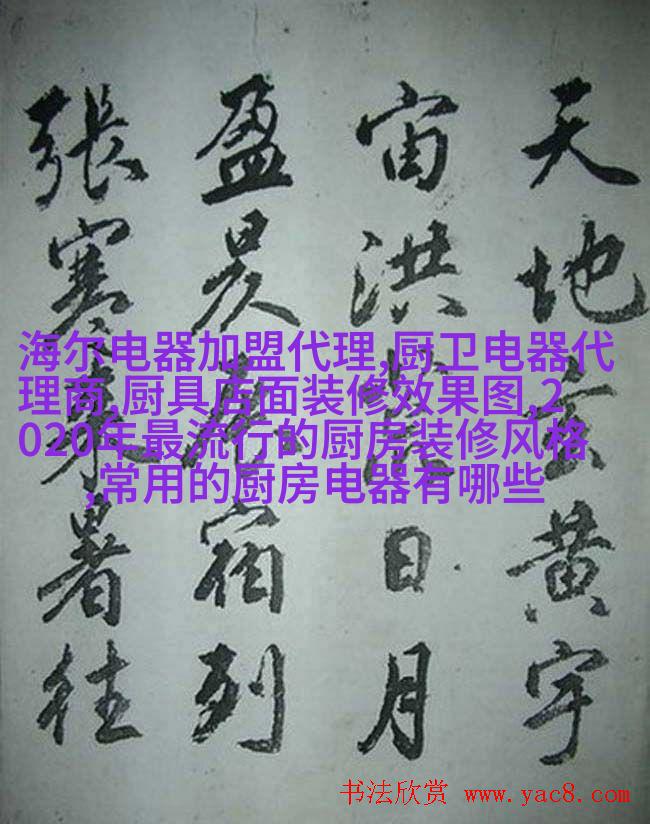 天地玄黄宇
宙洪荒日月
盈昃辰宿列
張寒来暑往
海尔电器加盟代理,厨卫电器代
理商,厨具店面装修效果图,2
020年最流行的厨房装修风格
,常用的厨房电器有哪些
书法欣赏 www.yac8.com